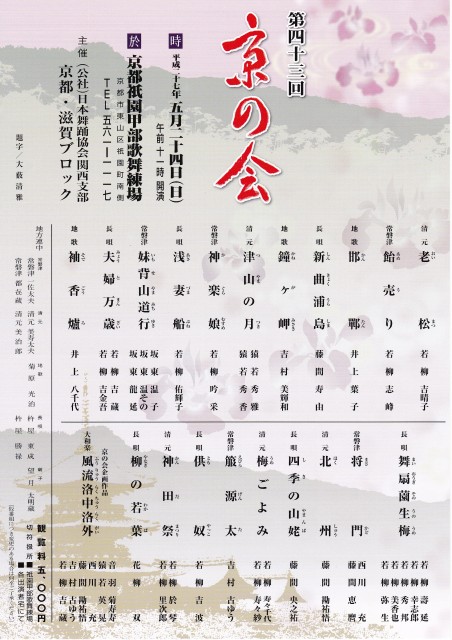 第四十三回
京の会
時 平成二十七年 五月二十四日(日)
午前十一時 開演
於 京都祇園甲部歌舞練場
京都市東山区祇園町南側
TEL 五六一―一一一七
主催 (公社)日本舞踊協会関西支部
京都・滋賀ブロック
題字/大藪清雅
清元 老松 若柳吉晴子
常磐津 飴売り 若柳志峰
地歌 邯鄲 井上葉子
長唄 新曲浦島 藤間寿山
地歌 鐘ヶ岬 吉村美輝和
清元 津山の月 猿若秀雅 猿若秀香
常磐津 神楽娘 若柳吟采
長唄 浅妻船 若柳佑輝子
常磐津 妹背山道行 坂東温子 坂東温その 坂東龍延
長唄 夫婦万歳 若柳吉蔵 若柳吉金吾
地歌 袖香爐 井上八千代
地方連中
長唄 舞扇薗生梅 若柳壽延 若柳幸志郎 若柳秀邦 若柳美香也 若柳弥生
常磐津 将門 西川充 藤間恵麿
清元 北州 藤間勘祐悟
長唄 四季の山姥 藤間央之祐
清元 梅ごよみ 若柳寿々代 若柳寿々紗
常磐津 簱源太 吉村古ゆう
長唄 供奴 若柳吉波
清元 神田祭 若柳於琴 若柳里次郎
長唄 柳の若葉 花柳双
京の会企画作品
大和楽 風流洛中洛外
音羽菊寿寿 猿若英晃 西川充 藤間勘祐悟 吉村古ゆう 若柳吉蔵
観覧料 五、〇〇〇円
切符獲所 ■祇園甲部歌舞練場
■各出演者宅にて